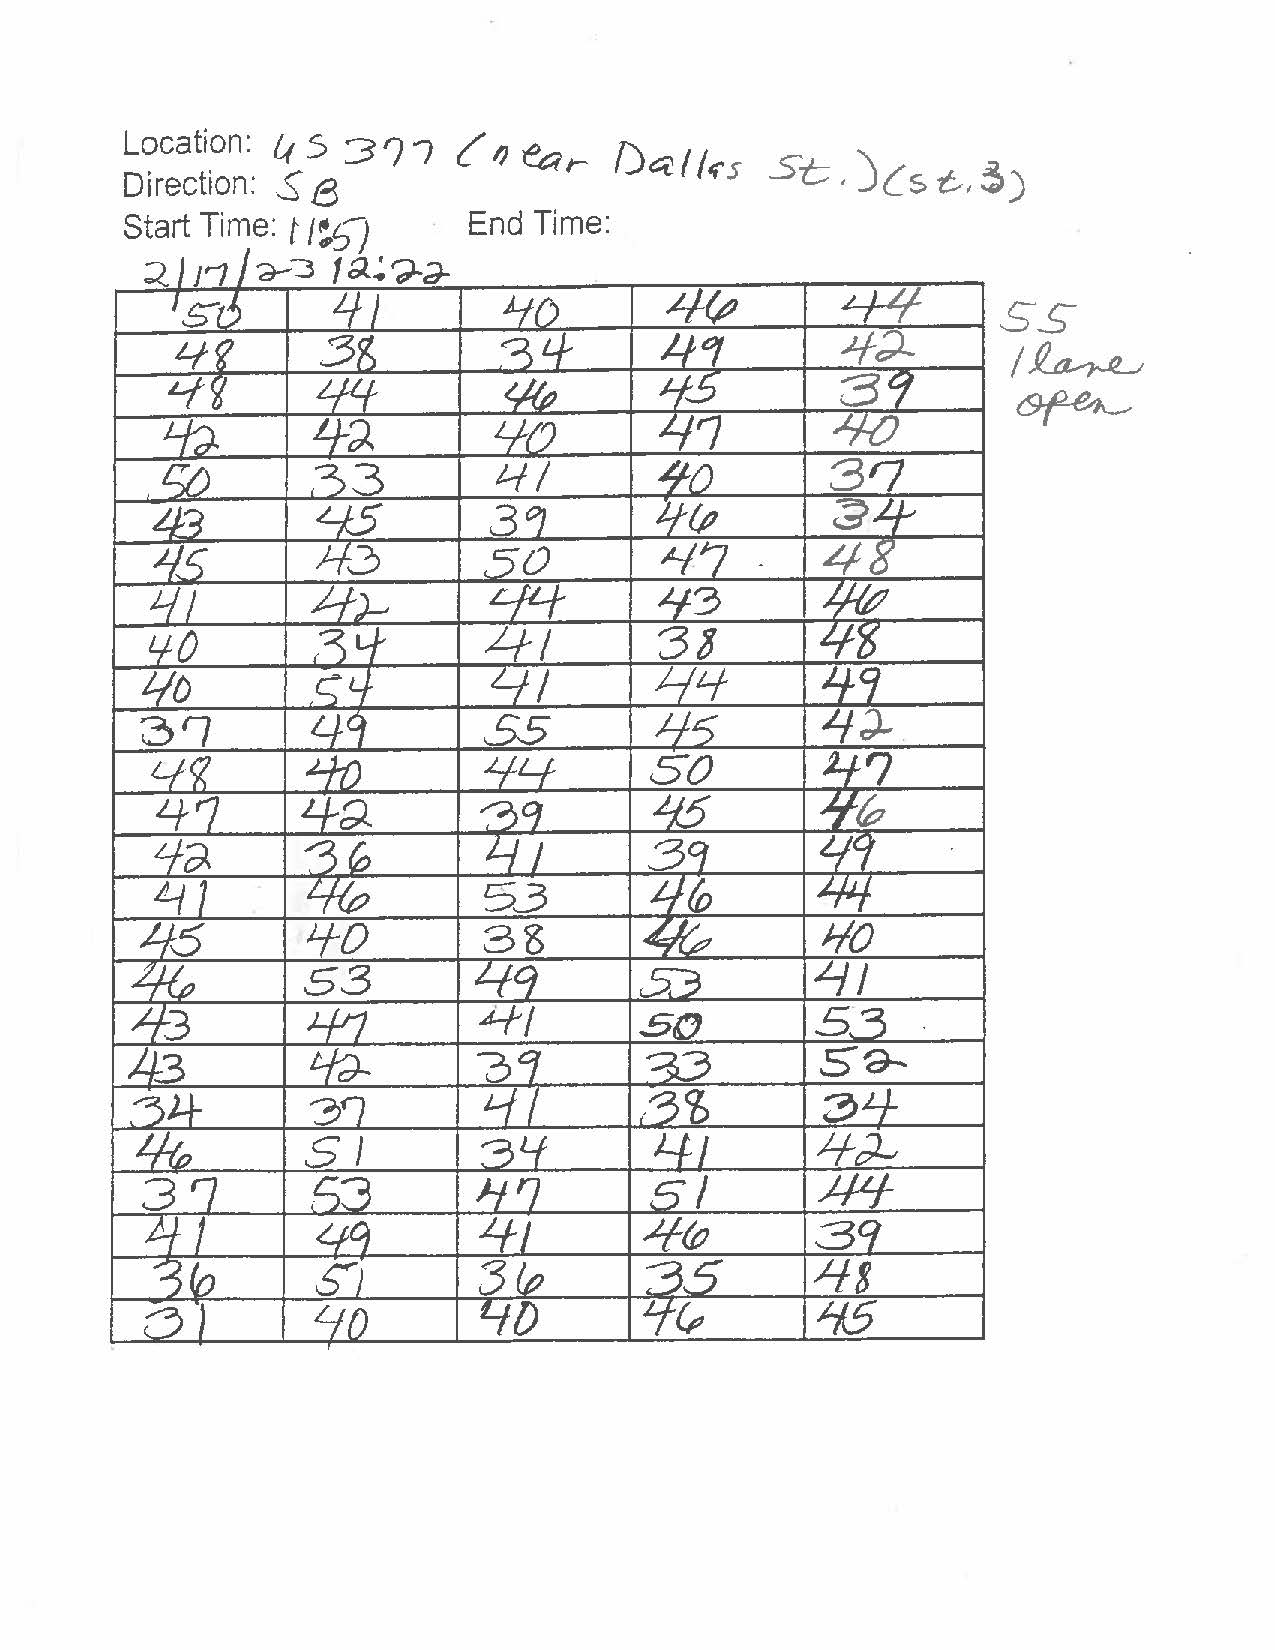 Location: US 377 (near Dallas St.) (st. 3)
Direction: SB
Start Time: 11:57 End Time:
2/17/23 12:22
50 41 40 46 44 55
48 38 34 49 42 1 lane
48 44 46 45 39 open
42 42 40 47 40
50 33 41 40 37
43 45 39 46 34
45 43 50 47 48
41 42 44 43 46
40 34 41 38 48
40 54 41 44 49
37 49 55 45 42
48 40 44 50 47
47 42 39 45 46
42 36 41 39 49
41 46 53 46 44
45 40 38 46 40
46 53 49 53 41
43 47 41 50 53
43 42 39 33 52
34 37 41 38 34
46 51 34 41 42
37 53 47 51 44
41 49 41 46 39
36 51 36 35 48
31 40 40 46 45